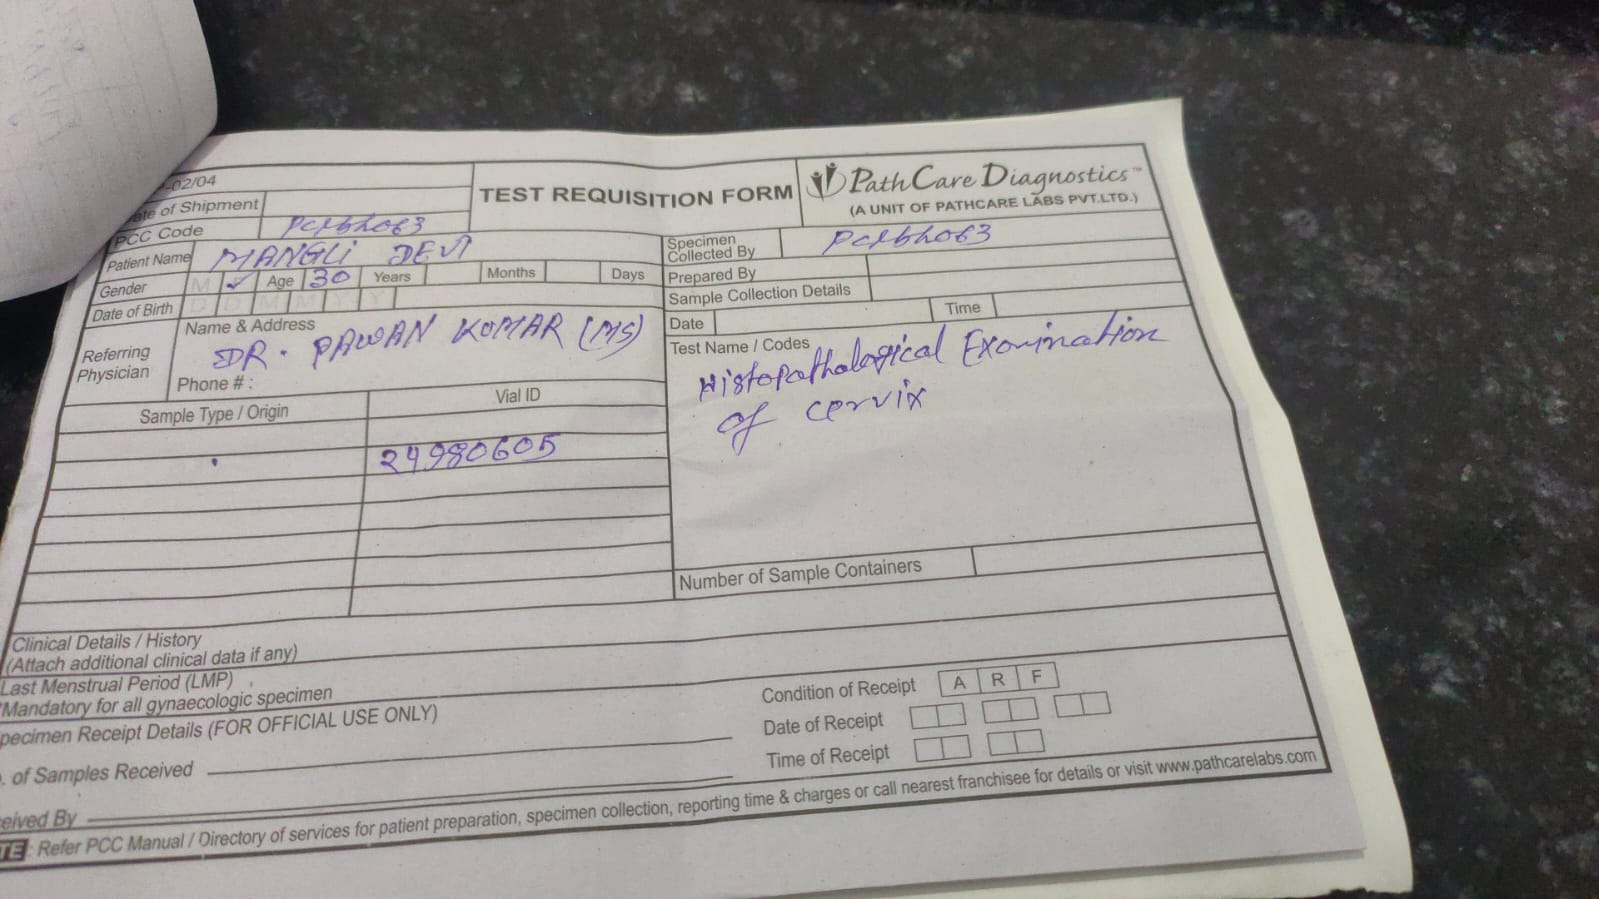 -02/04
TEST REQUISITION FORM
PathCare Diagnostics™
(A UNIT OF PATHCARE LABS PVT.LTD.)
of Shipment
PCC Code
Patient Name MANGLI DEVI
Gender M ✓ Age 30 Years Months Days
Date of Birth D D M M Y Y
Referring Physician
Name & Address
DR. PAWAN KUMAR (MS)
Phone # :
Specimen Collected By
Prepared By
Sample Collection Details
Date Time
Test Name / Codes
Histopathological Examination
of cervix
Sample Type / Origin Vial ID
24980605
Number of Sample Containers
Clinical Details / History
(Attach additional clinical data if any)
Last Menstrual Period (LMP)
*Mandatory for all gynaecologic specimen
pecimen Receipt Details (FOR OFFICIAL USE ONLY)
. of Samples Received
eived By
Condition of Receipt A R F
Date of Receipt
Time of Receipt
TE : Refer PCC Manual / Directory of services for patient preparation, specimen collection, reporting time & charges or call nearest franchisee for details or visit www.pathcarelabs.com